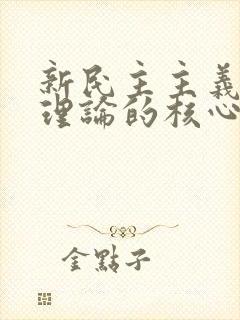 新民主主義
理論的核心
金點子